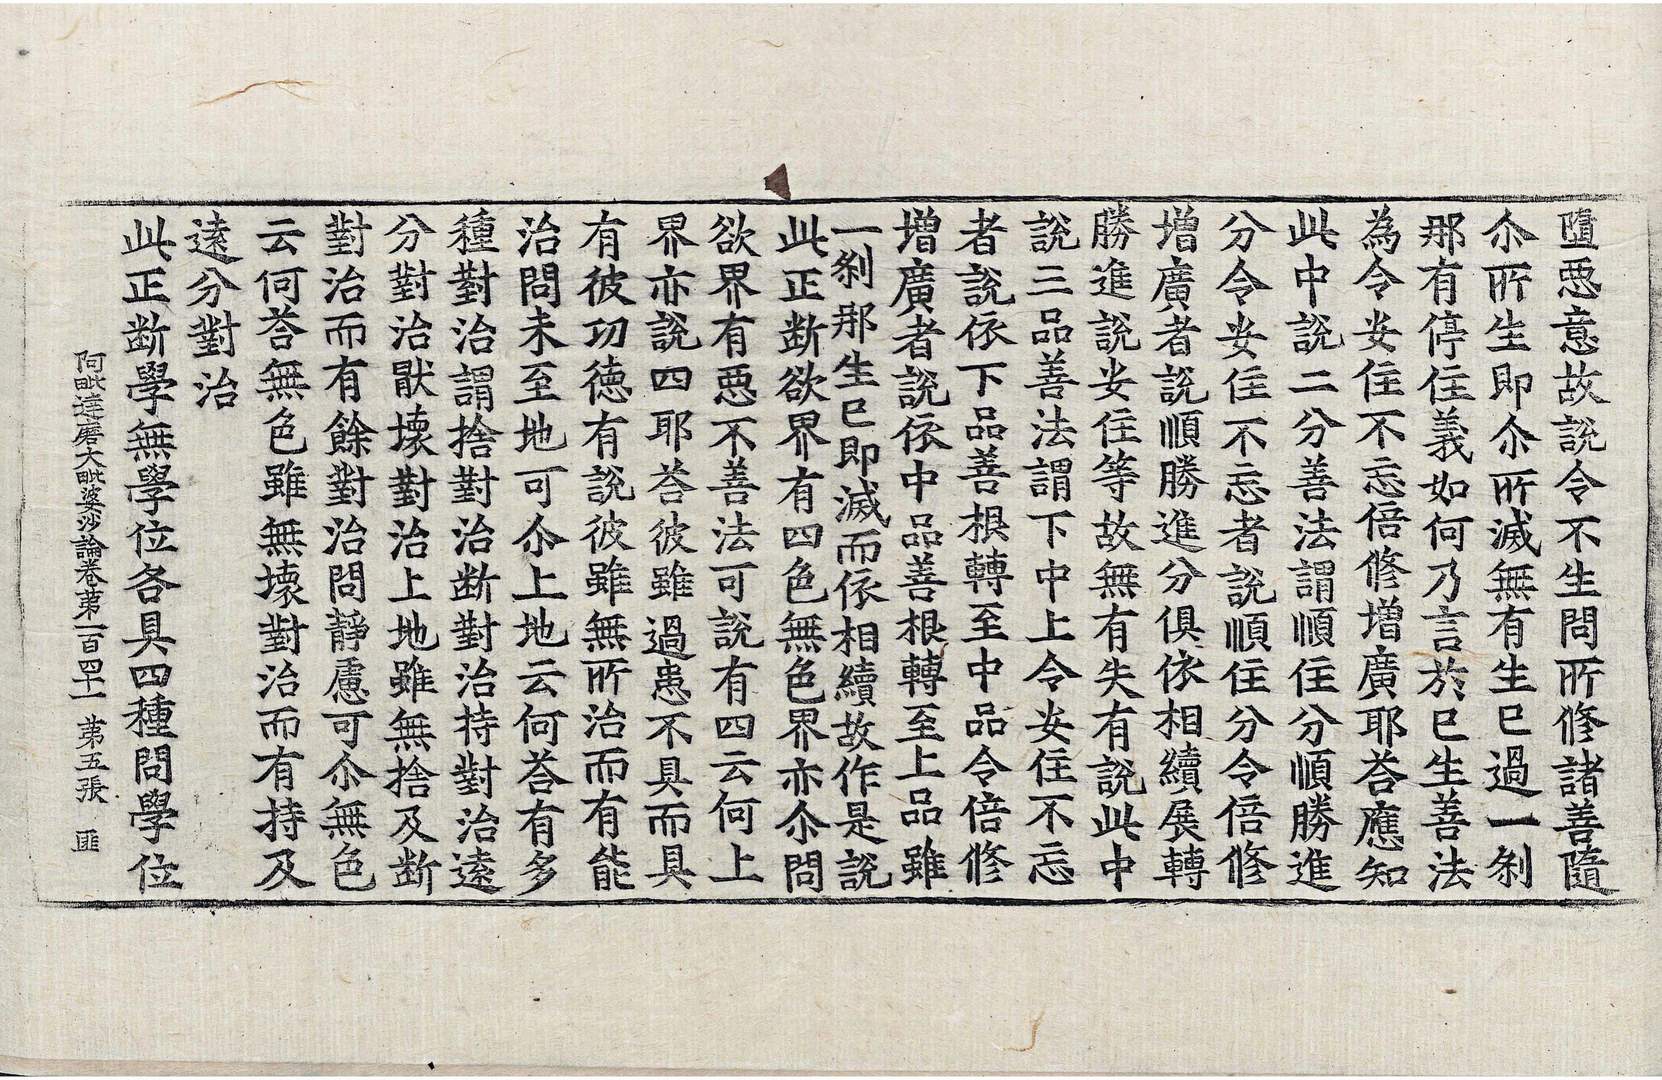 墮惡意故說令不生問所修諸善隨
尒所生即尒所滅無有生已過一剎
那有停住義如何乃言於已生善法
為令安住不忘倍修增廣耶荅應知
此中說二分善法謂順住分順勝進
分令安住不忘者說順住分令倍修
增廣者說順勝進分俱依相續展轉
勝進說安住等故無有失有說此中
說三品善法謂下中上令安住不忘
者說依下品善根轉至中品令倍修
增廣者說依中品善根轉至上品雖
一剎那生已即滅而依相續故作是說
此正断欲界有四色無色界亦尒問
欲界有惡不善法可說有四云何上
界亦說四耶荅彼雖過患不具而具
有彼功德有說彼雖無所治而有能
治問未至地可尒上地云何荅有多
種對治謂捨對治断對治持對治遠
分對治猒壞對治上地雖無捨及断
對治而有餘對治問靜慮可尒無色
云何荅無色雖無壞對治而有持及
遠分對治
此正断學無學位各具四種問學位
阿毗達磨大毗婆沙論卷苐一百四十一 苐五張 匪